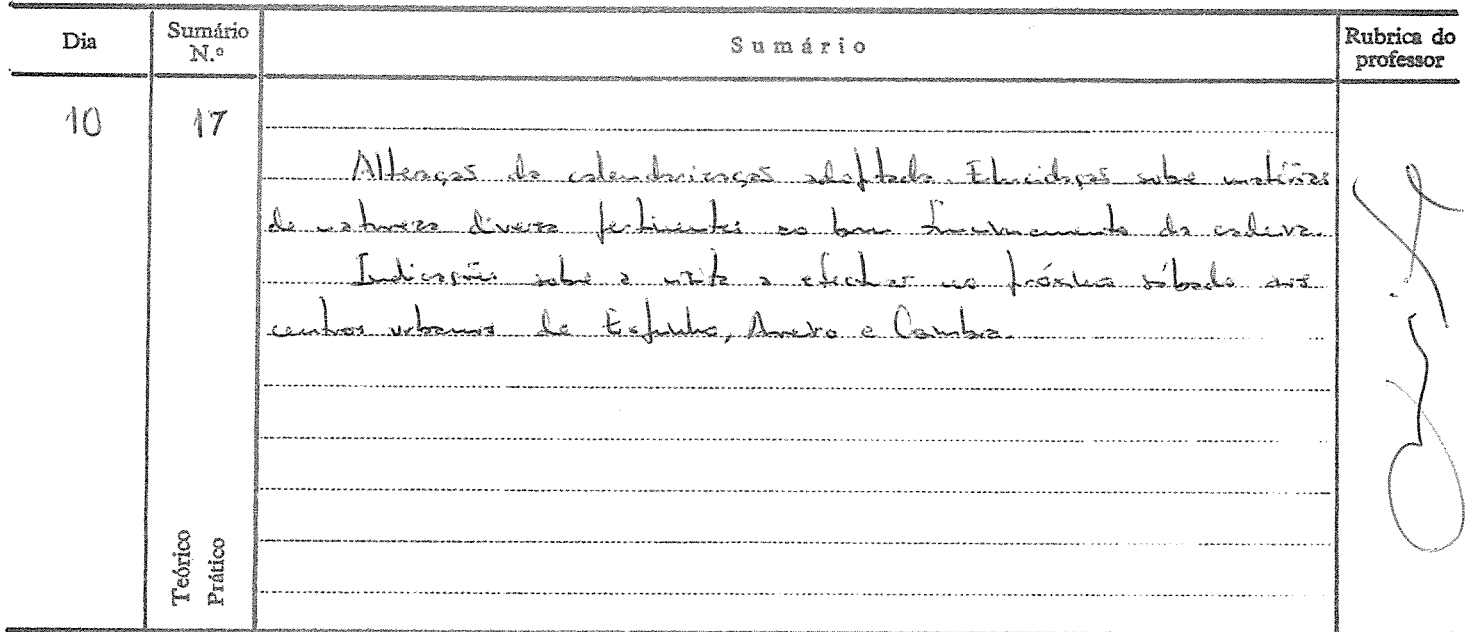 Dia
Sumário
N.º
Sumário
Rubrica do
professor
10
17
Alteração da calendarização adoptada. Elucidação sobre matérias
de natureza diversa pertinentes ao bom funcionamento da cadeira.
Indicações sobre a visita a efectuar no próximo sábado aos
centros urbanos de Espinho, Aveiro e
Teórico
Prático